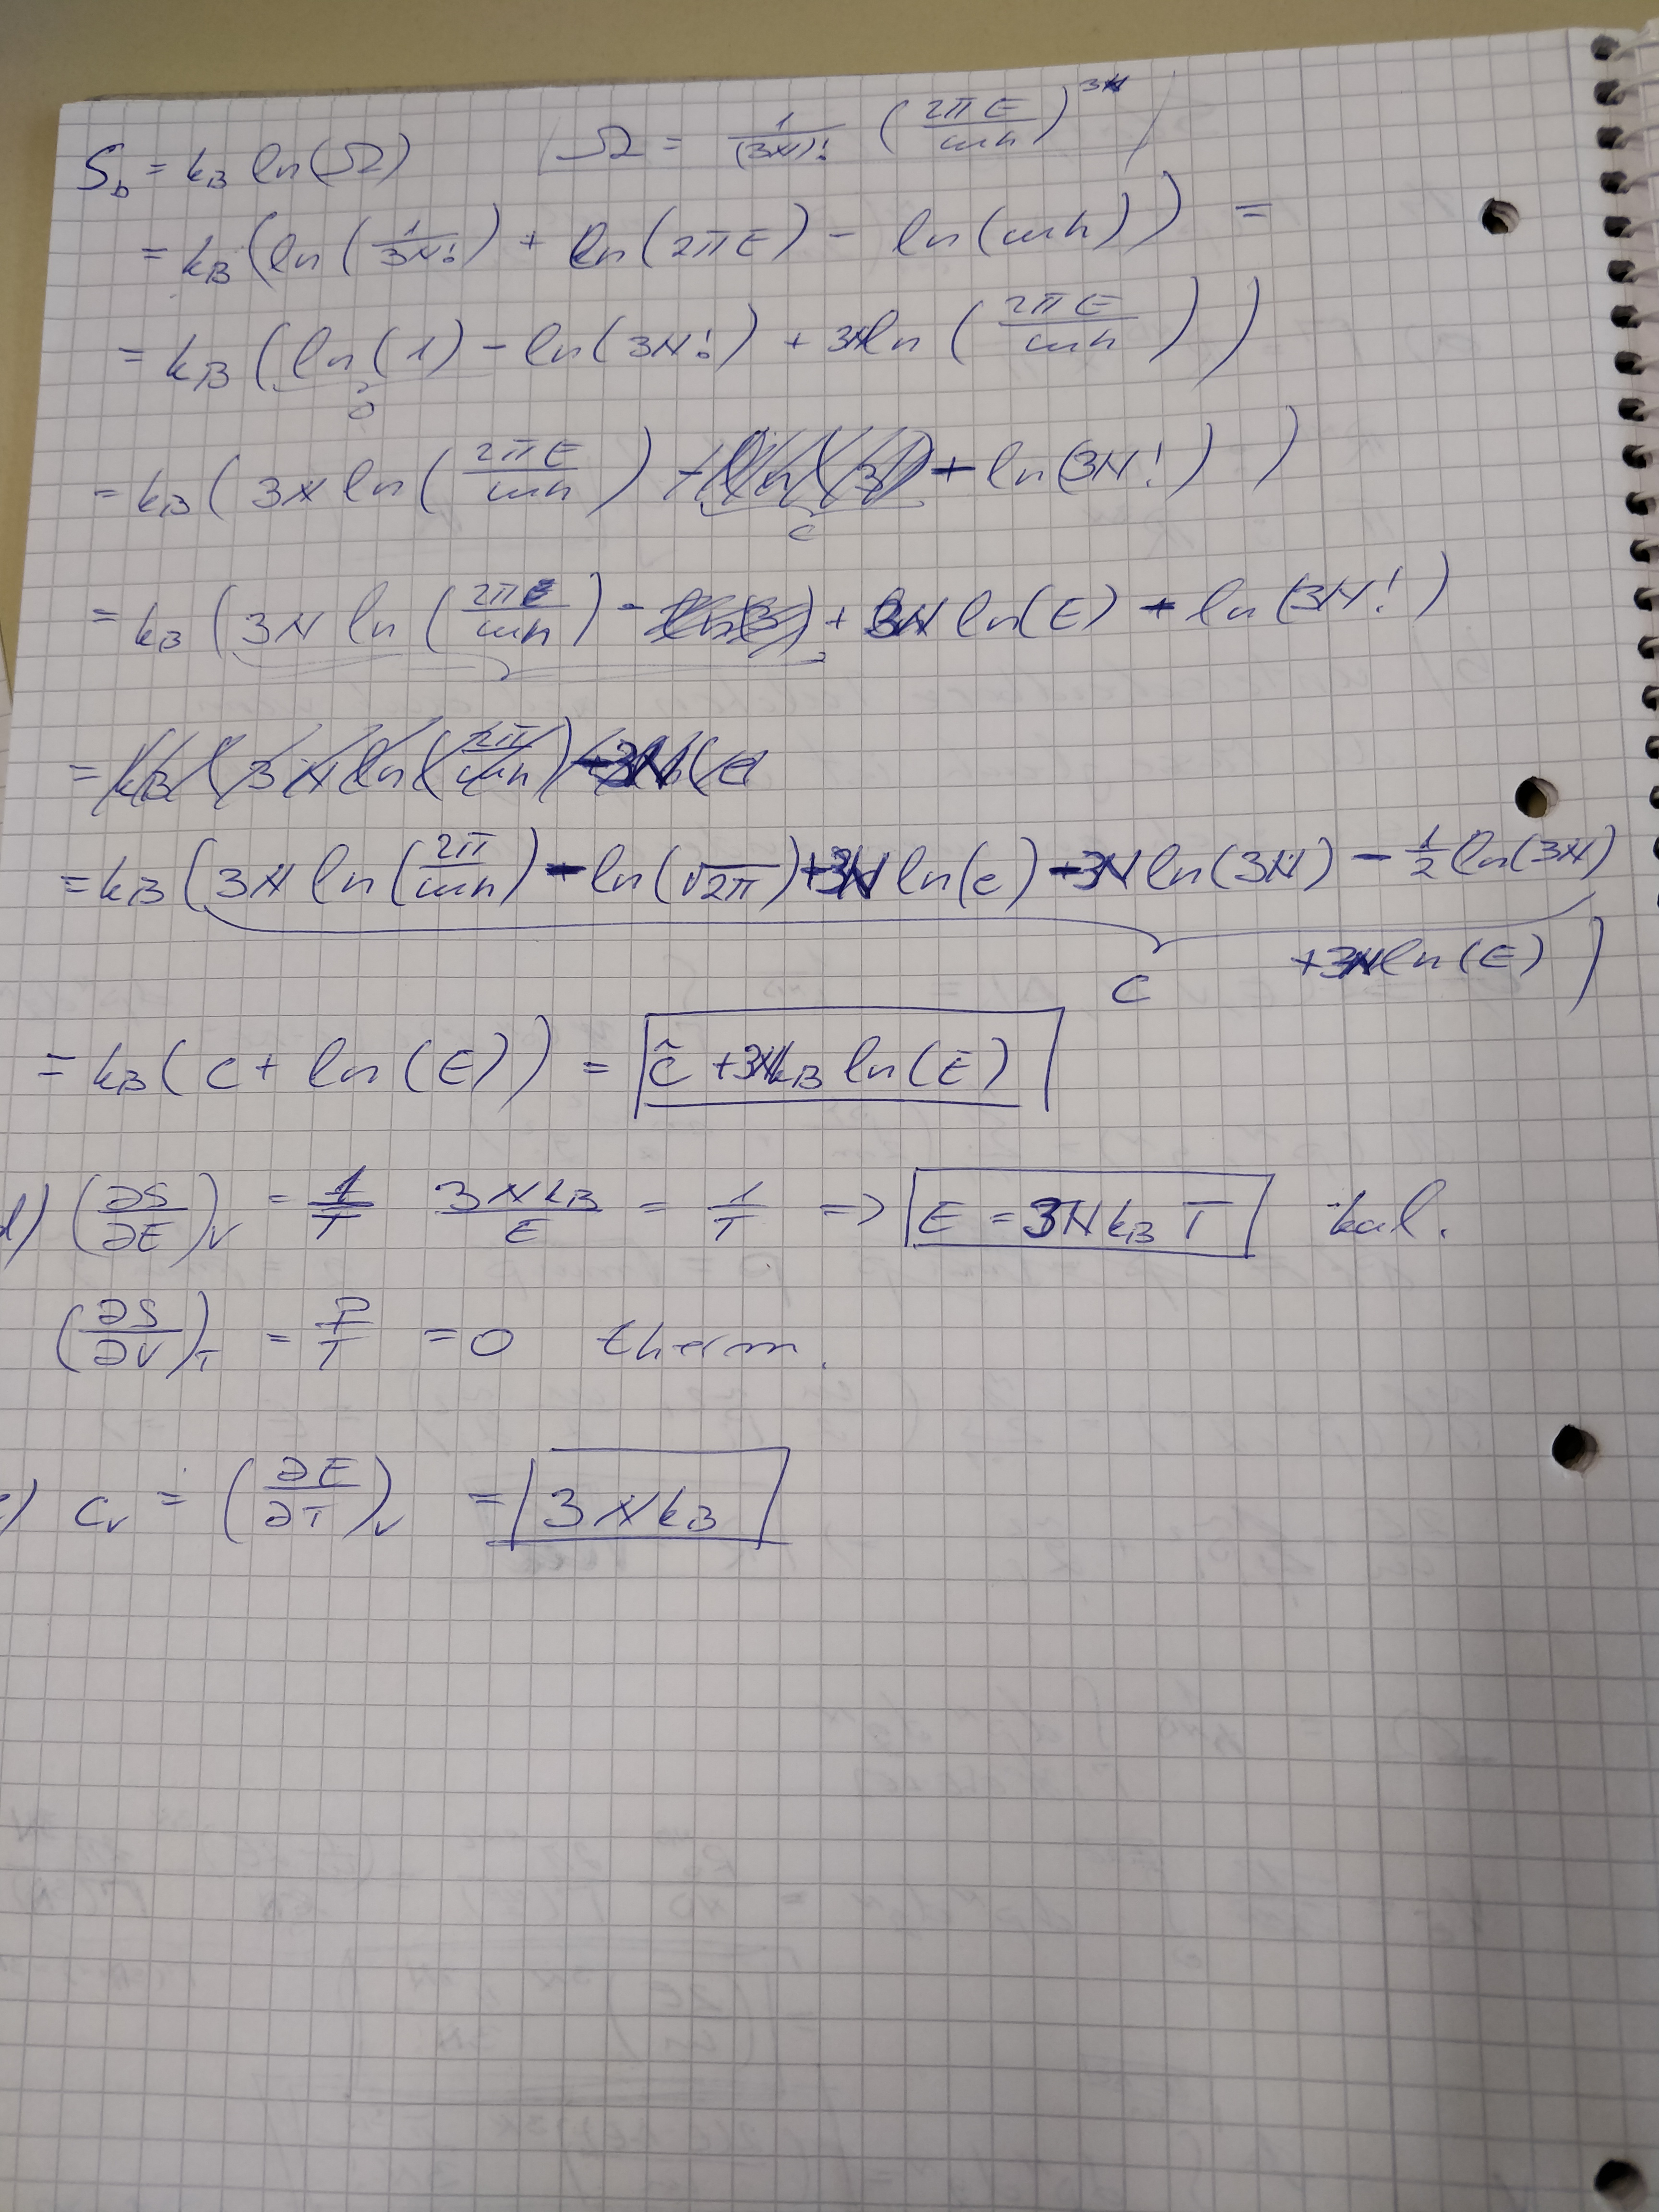 S_b = k_B ln(Ω) | Ω = 1/(3N)! (2πE/ωh)^3N |
= k_B (ln(1/3N!) + ln(2πE) - ln(ωh)) =
= k_B (ln(1) - ln(3N!) + 3N ln(2πE/ωh))
0
= k_B (3N ln(2πE/ωh) + ln(3N!))
c
= k_B (3N ln(2π/ωh) - + 3N ln(E) - ln(3N!)
= k_B (3N ln(2π/ωh)
= k_B (3N ln(2π/ωh) - ln(√2π) + 3N ln(e) - 3N ln(3N) - 1/2 ln(3N)
c + 3N ln(E))
= k_B (c + ln(E)) = c̃ + 3N k_B ln(E)
d) (∂S/∂E)_V = 1/T 3Nk_B/E = 1/T => E = 3Nk_B T kal.
(∂S/∂V)_T = P/T = 0 therm.
) c_v = (∂E/∂T)_V = 3Nk_B